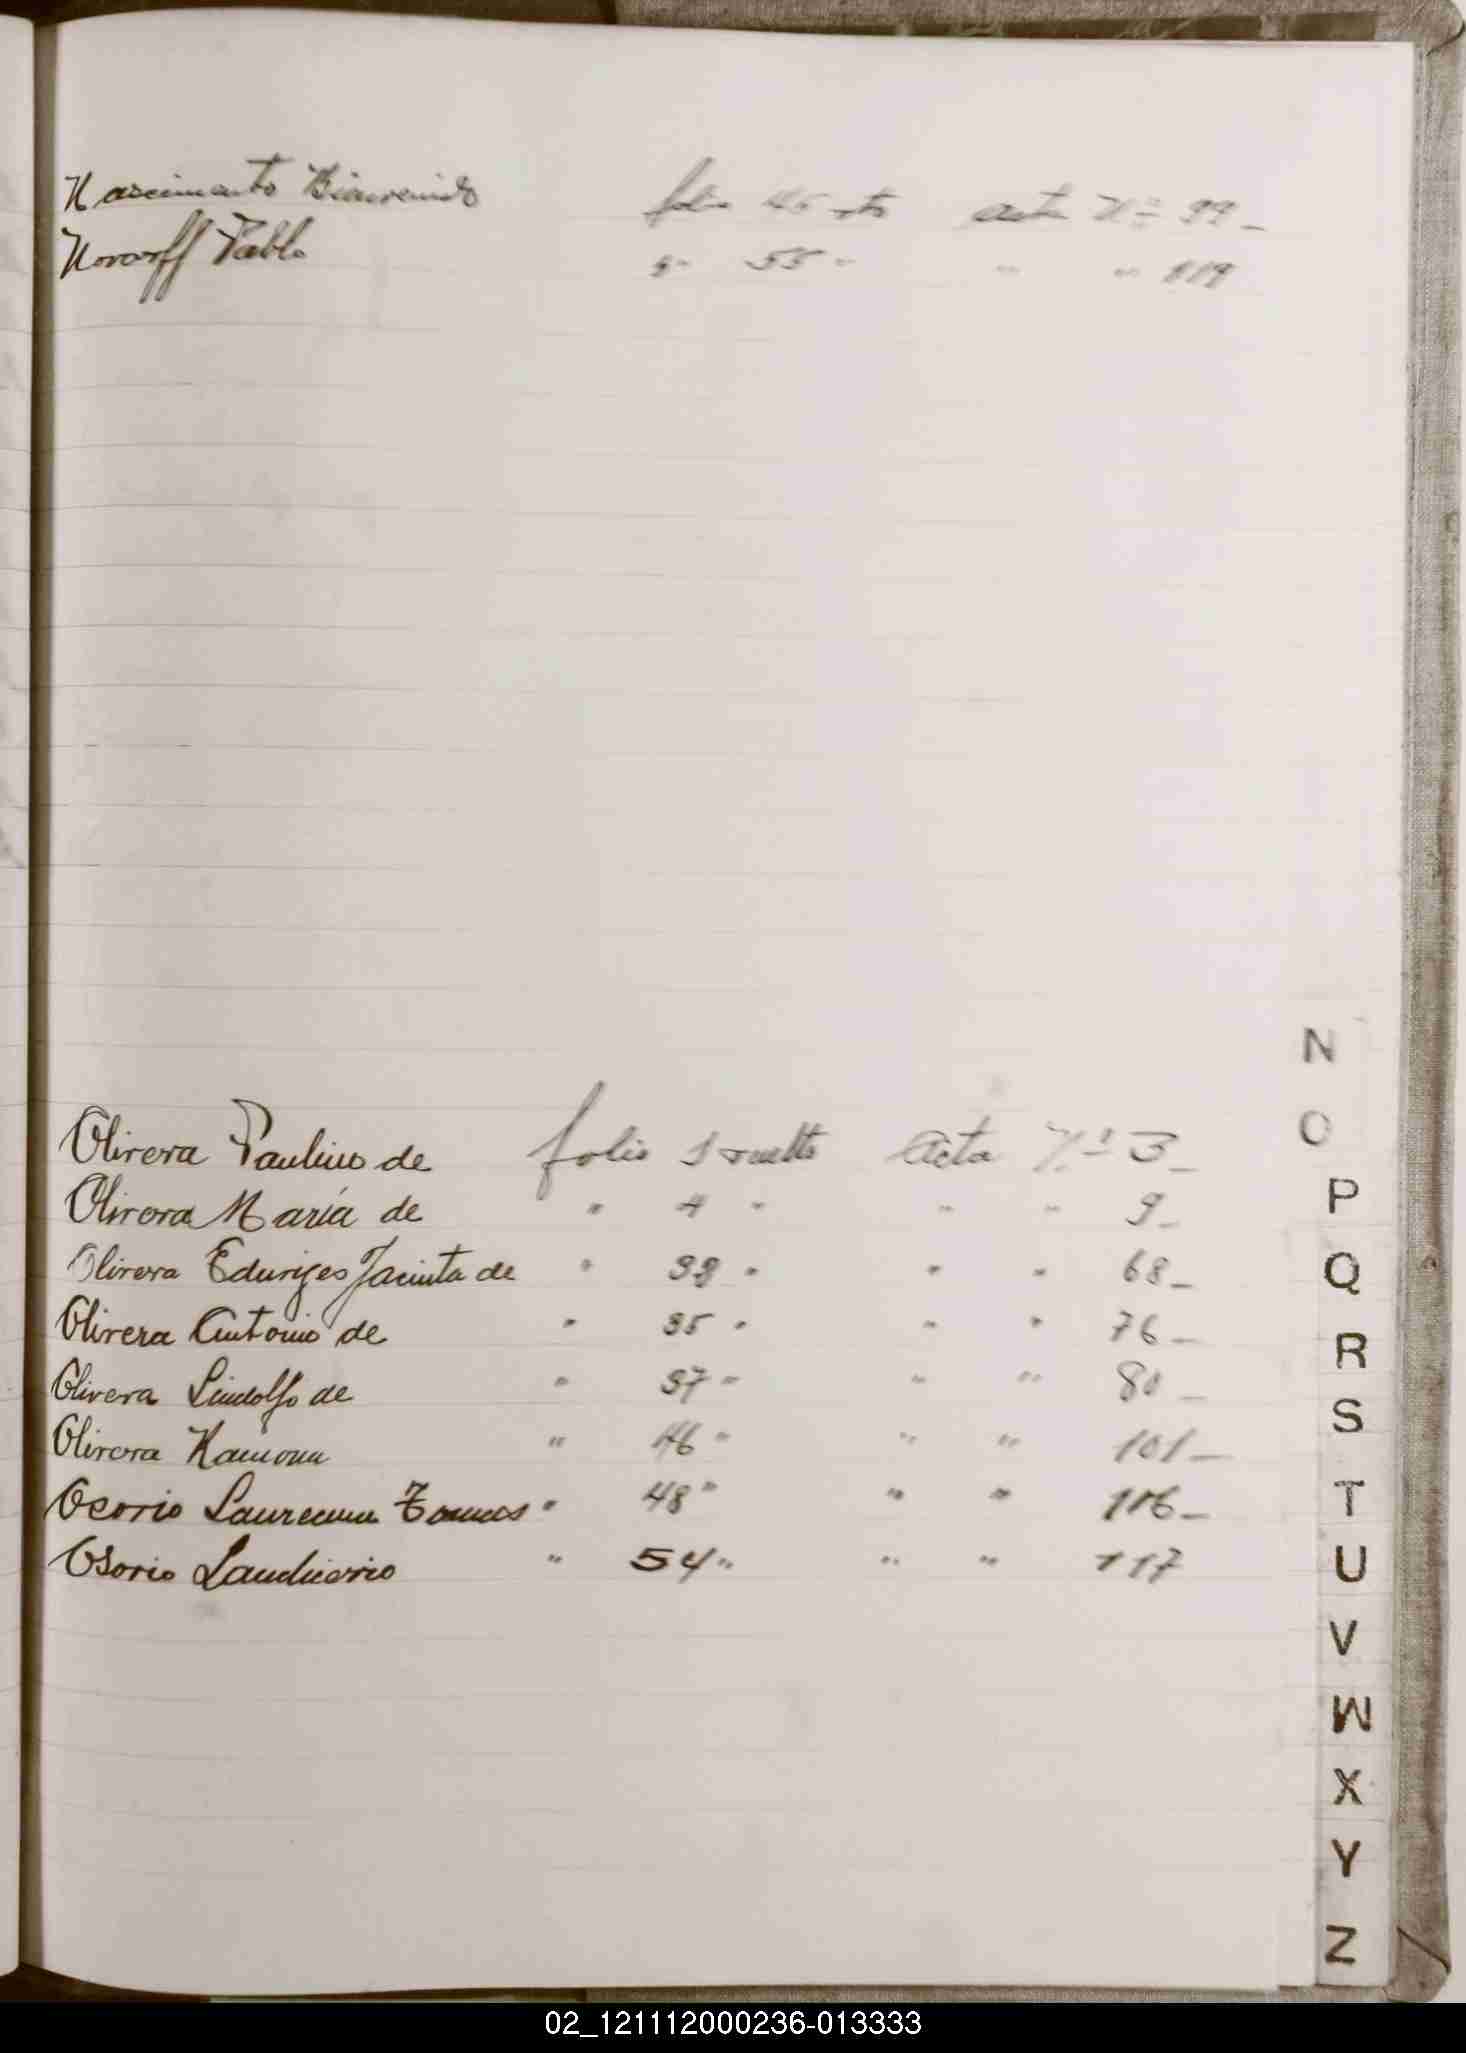 Nascimento Bienvenido folio 45 vto acta Nº 99_
Novorff Pablo " 55 " " " 119
Olivera Paulino de folio 1 vuelto Acta Nº 3_
Olivera María de " 4 " " " 9_
Olivera Eduriges Jacinta de " 33 " " " 68_
Olivera Antonio de " 35 " " " 76_
Olivera Lindolfo de " 37 " " " 80_
Olivera Ramona " 46 " " " 101_
Osorio Laureana Tomas " 48 " " " 106_
Osorio " 54 " " " 117
N
O
P
Q
R
S
T
U
V
W
X
Y
Z
02_121112000236-013333